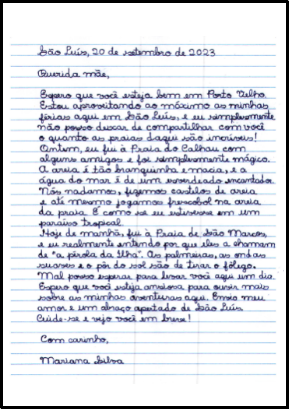 São Luís, 20 de setembro de 2023
Querida mãe,
Espero que você esteja bem em Porto Velho.
Estou aproveitando ao máximo as minhas
férias aqui em São Luís, e eu simplesmente
não posso deixar de compartilhar com você
o quanto as praias daqui são incríveis!
Ontem, eu fui à Praia do Calhau com
alguns amigos e foi simplesmente mágico.
A areia é tão branquinha e macia, e a
água do mar é de um esverdeado encantador.
Nós nadamos, fizemos castelos de areia
e até mesmo jogamos frescobol na areia
da praia. É como se eu estivesse em um
paraíso tropical.
Hoje de manhã, fui à Praia de São Marcos
e eu realmente entendo por que eles a chamam
de "a pérola da Ilha". As palmeiras, as ondas
suaves e o pôr do sol são de tirar o fôlego.
Mal posso esperar para levar você aqui um dia.
Espero que você esteja ansiosa para ouvir mais
sobre as minhas aventuras aqui. Envio meu
amor e um abraço apertado de São Luís.
Cuide-se e vejo você em breve!
Com carinho,
Mariana Silva